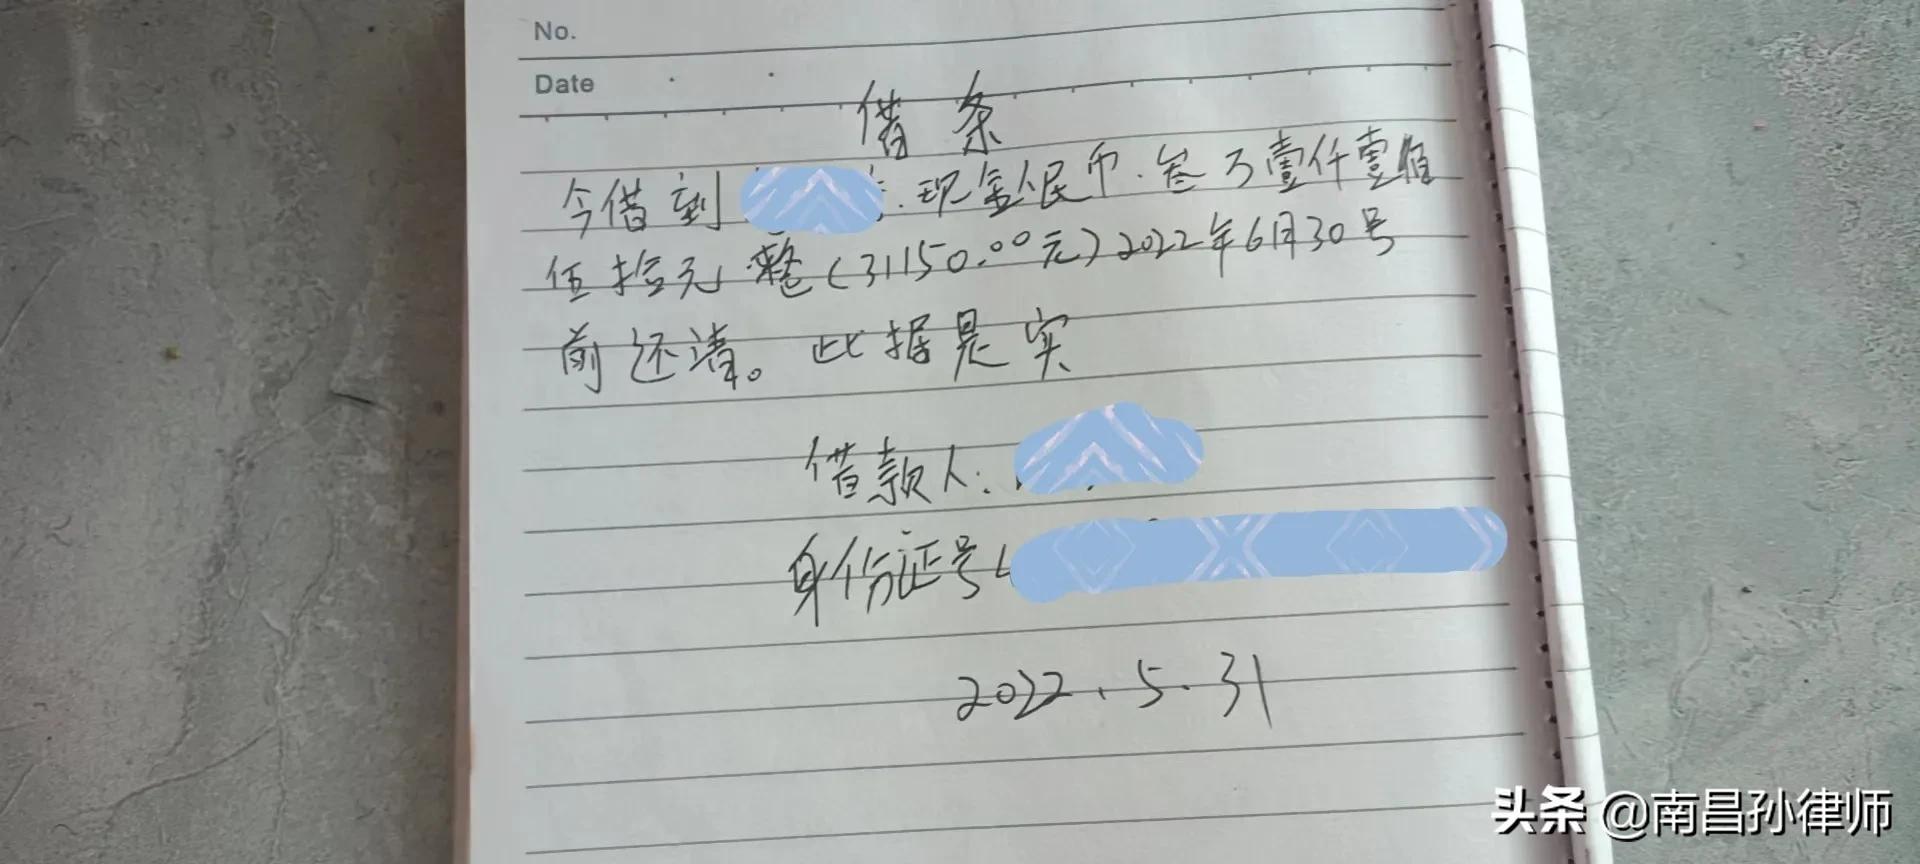 No.
Date
借条
今借到 现金人民币.叁万壹仟壹佰
伍拾元整(31150.00元)2022年6月30号
前还清。此据是实
借款人:
身份证号
2022.5.31
头条 @南昌孙律师